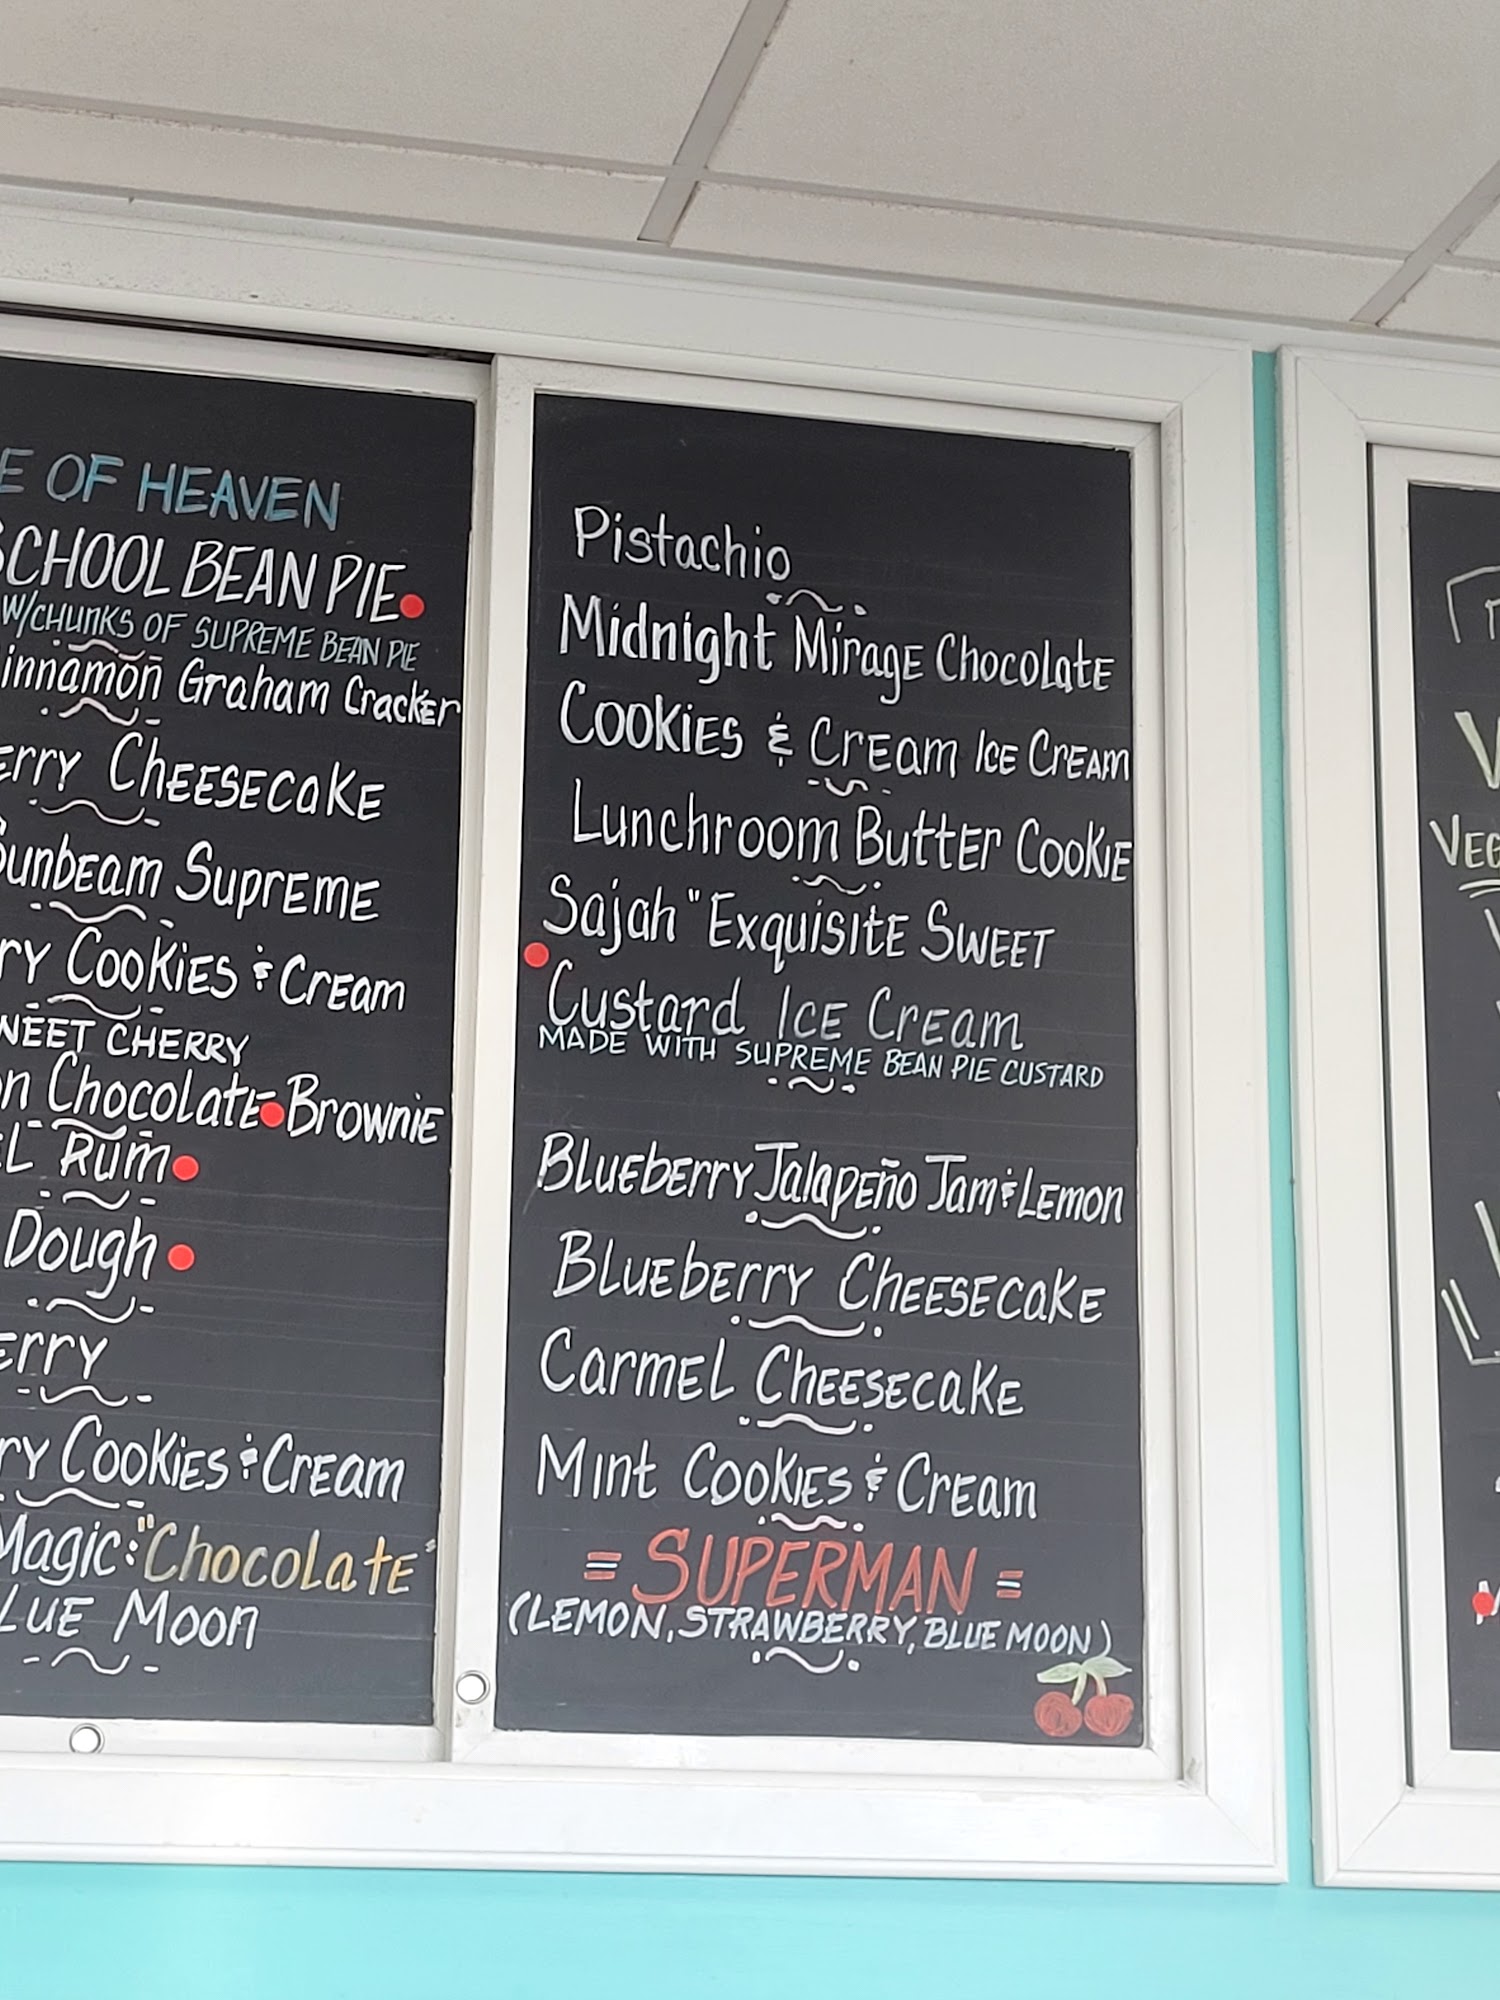 OF HEAVEN
SCHOOL BEAN PIE
W/CHUNKS OF SUPREME BEAN PIE
Graham Cracker
CHEESECAKE
SUPREME
COOKIES & CREAM
CHERRY
CHOCOLATE BROWNIE
RUM
Dough
COOKIES & CREAM
Magic "CHOCOLATE"
Moon
Pistachio
Midnight Mirage Chocolate
COOKIES & CREAM ICE CREAM
Lunchroom Butter COOKIE
Sajah "Exquisite SWEET
Custard ICE CREAM
MADE WITH SUPREME BEAN PIE CUSTARD
BLUEBERRY JALAPEÑO JAM & LEMON
BLUEBERRY CHEESECAKE
CARMEL CHEESECAKE
MINT COOKIES & CREAM
= SUPERMAN =
(LEMON, STRAWBERRY, BLUE MOON)